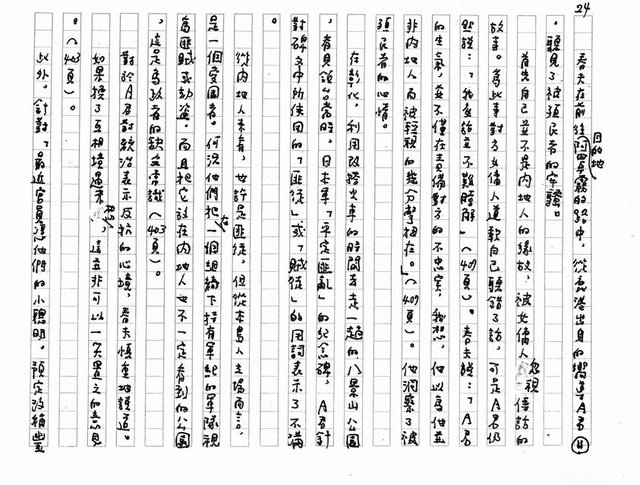 24
春夫在前往目的地阿罩霧的路中,從鹿港出身的嚮導A君⑪
,聽見了被殖民者的牢騷。
首先自己並不是內地人的緣故,被女傭人忽視傳話的
故事。為此事對方女傭人道歉自己聽錯了話,可是A君仍
然說:「我查訪並不難瞭解」(409頁)。春夫說:「A君
的生氣,並不僅在責備對方的不忠實,我想,他以為他並
非內地人而被輕視的幾分摯插在。」(409頁)。他洞察了被
殖民者的心情。
在彰化,利用改搭火車的時間去走一趟的八景山公園
,看見領台當時,日本軍「平定匪亂」的紀念碑,A君針
對碑文中所使用的「匪徒」或「賊徒」的用詞表示了不滿
。
從內地人來看,也許是匪徒,但從本島人立場而言,
是一個愛國者。何況他們在一個組織下持有軍紀的軍隊視
為匪賊或劫盜。而且把它放在內地人也不一定看到的公園
,這是為政者的缺乏常識(403頁)。
對於A君對統治表示反抗的心境,春夫慎重地說道。
如果換了互相境遇來想,這並非可以一笑置之的意見
。(403頁)。
此外,針對「最近官員憑他們的小聰明。預定改稱豐